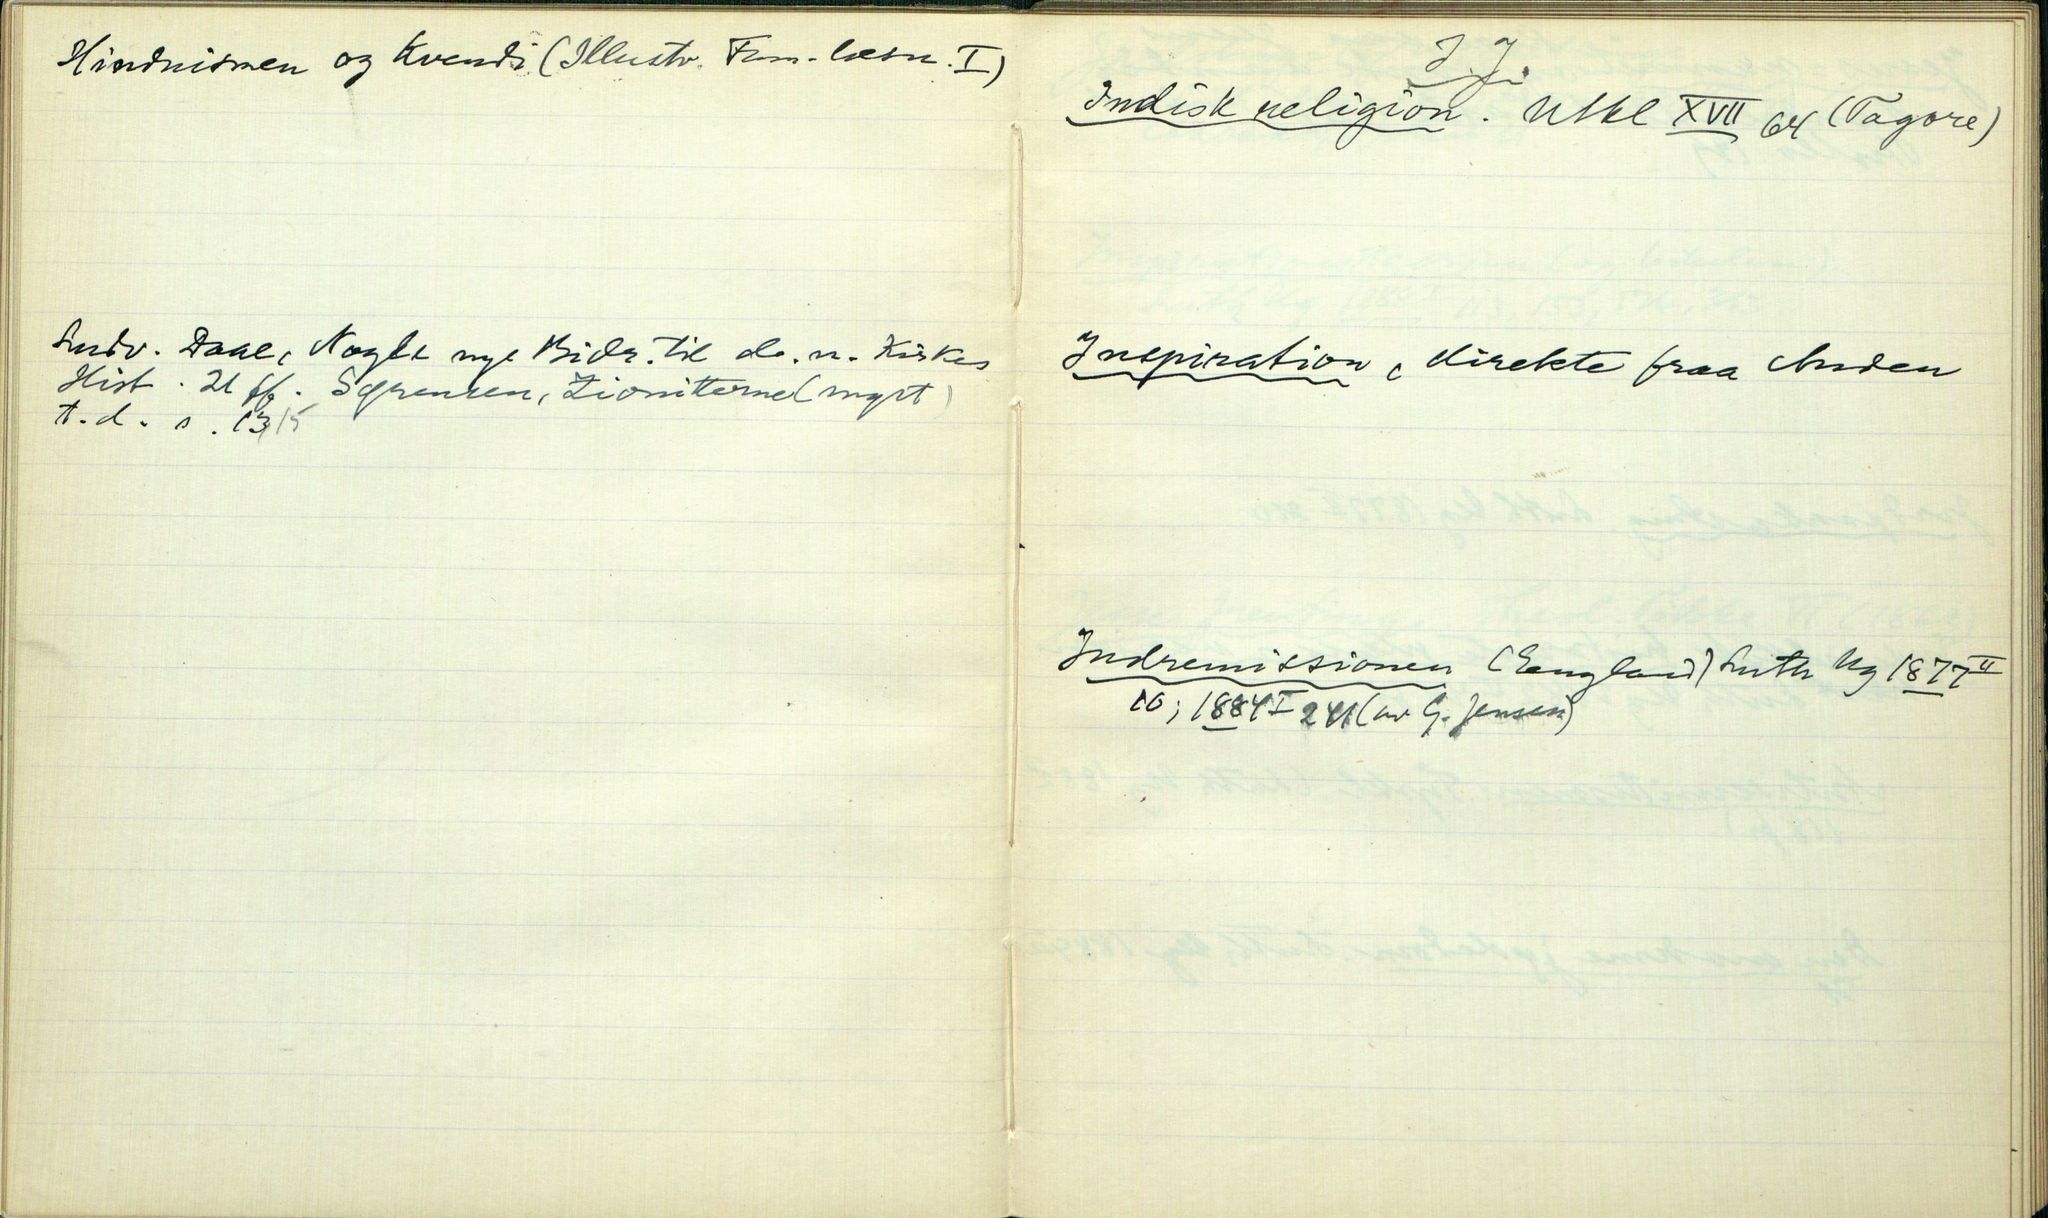 Hinduismen og Kvendi (Illustr. Fam. læsn. I)
Ludv. Daae, Nogle nye Bidr. til d. n. Kirkes
Hist. 21 ff. Sørensen, Zioniterne (myst)
t. d. s. 1315
I. J.
Indisk religion. Utkl XVII 64 (Tagore)
Inspiration, direkte fraa Anden
Indremissionen (England) Luth Ug 1877 II
10; 1884 I 241 (av G. Jensen)